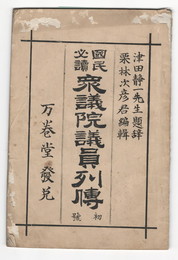 津田靜一先生題辭
栗林次彦君編輯
國民必讀
衆議院議員列傳
初號
万卷堂發兌